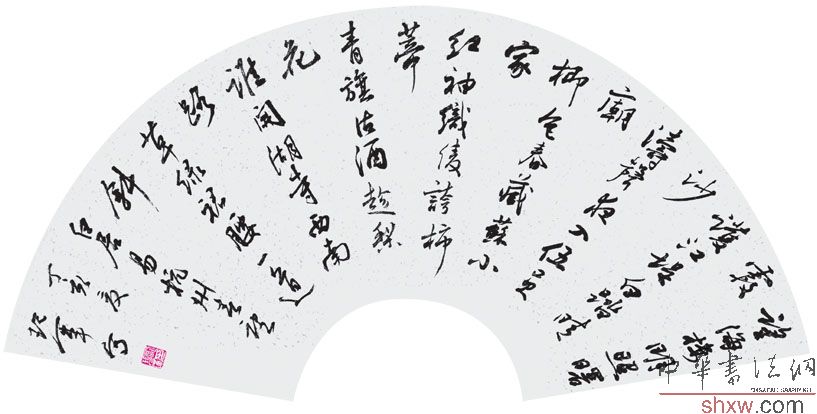 望海樓明照曙
霞
護江堤白踏晴
沙
濤聲夜入伍員
廟
柳色春藏蘇小
家
紅袖織綾誇柿
蒂
青旗沽酒趁梨
花
誰開湖寺西南
路
草綠裙腰一道
斜
白居易杭州春望
丁亥夏
写
中華書法網
shxw.com